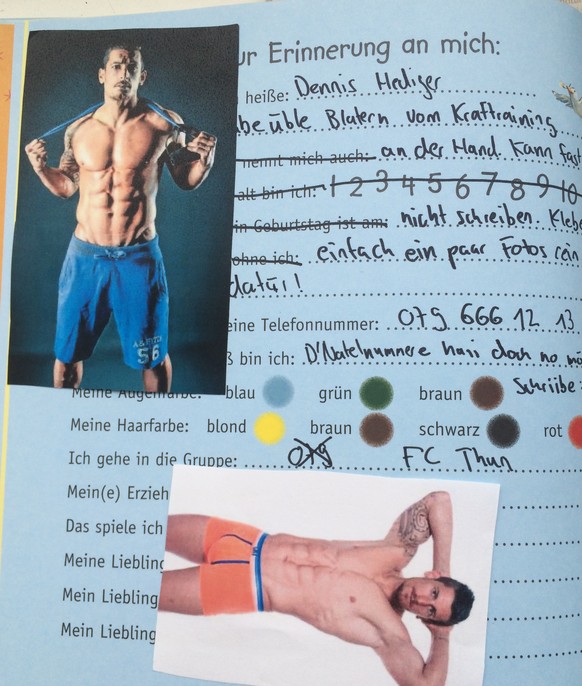 ur Erinnerung an mich:
heiße: Dennis Hediger
be üble Blatern vom Kraftraining
nennt mich auch: an der Hand. Kann fast
alt bin ich: 1 2 3 4 5 6 7 8 9 10
in Geburtstag ist am: nicht schreiben. Klebe
ohne ich: einfach ein paar Fotos rein
dafür!
eine Telefonnummer: 079 666 12 13
ß bin ich: D'Natelnummere hani doch no
Meine Augenfarbe: blau grün braun Schriibe
Meine Haarfarbe: blond braun schwarz rot
Ich gehe in die Gruppe: 079 FC Thun
Mein(e) Erzieh
Das spiele ich
Meine Liebling
Mein Liebling
Mein Liebling
A&FITCH
56